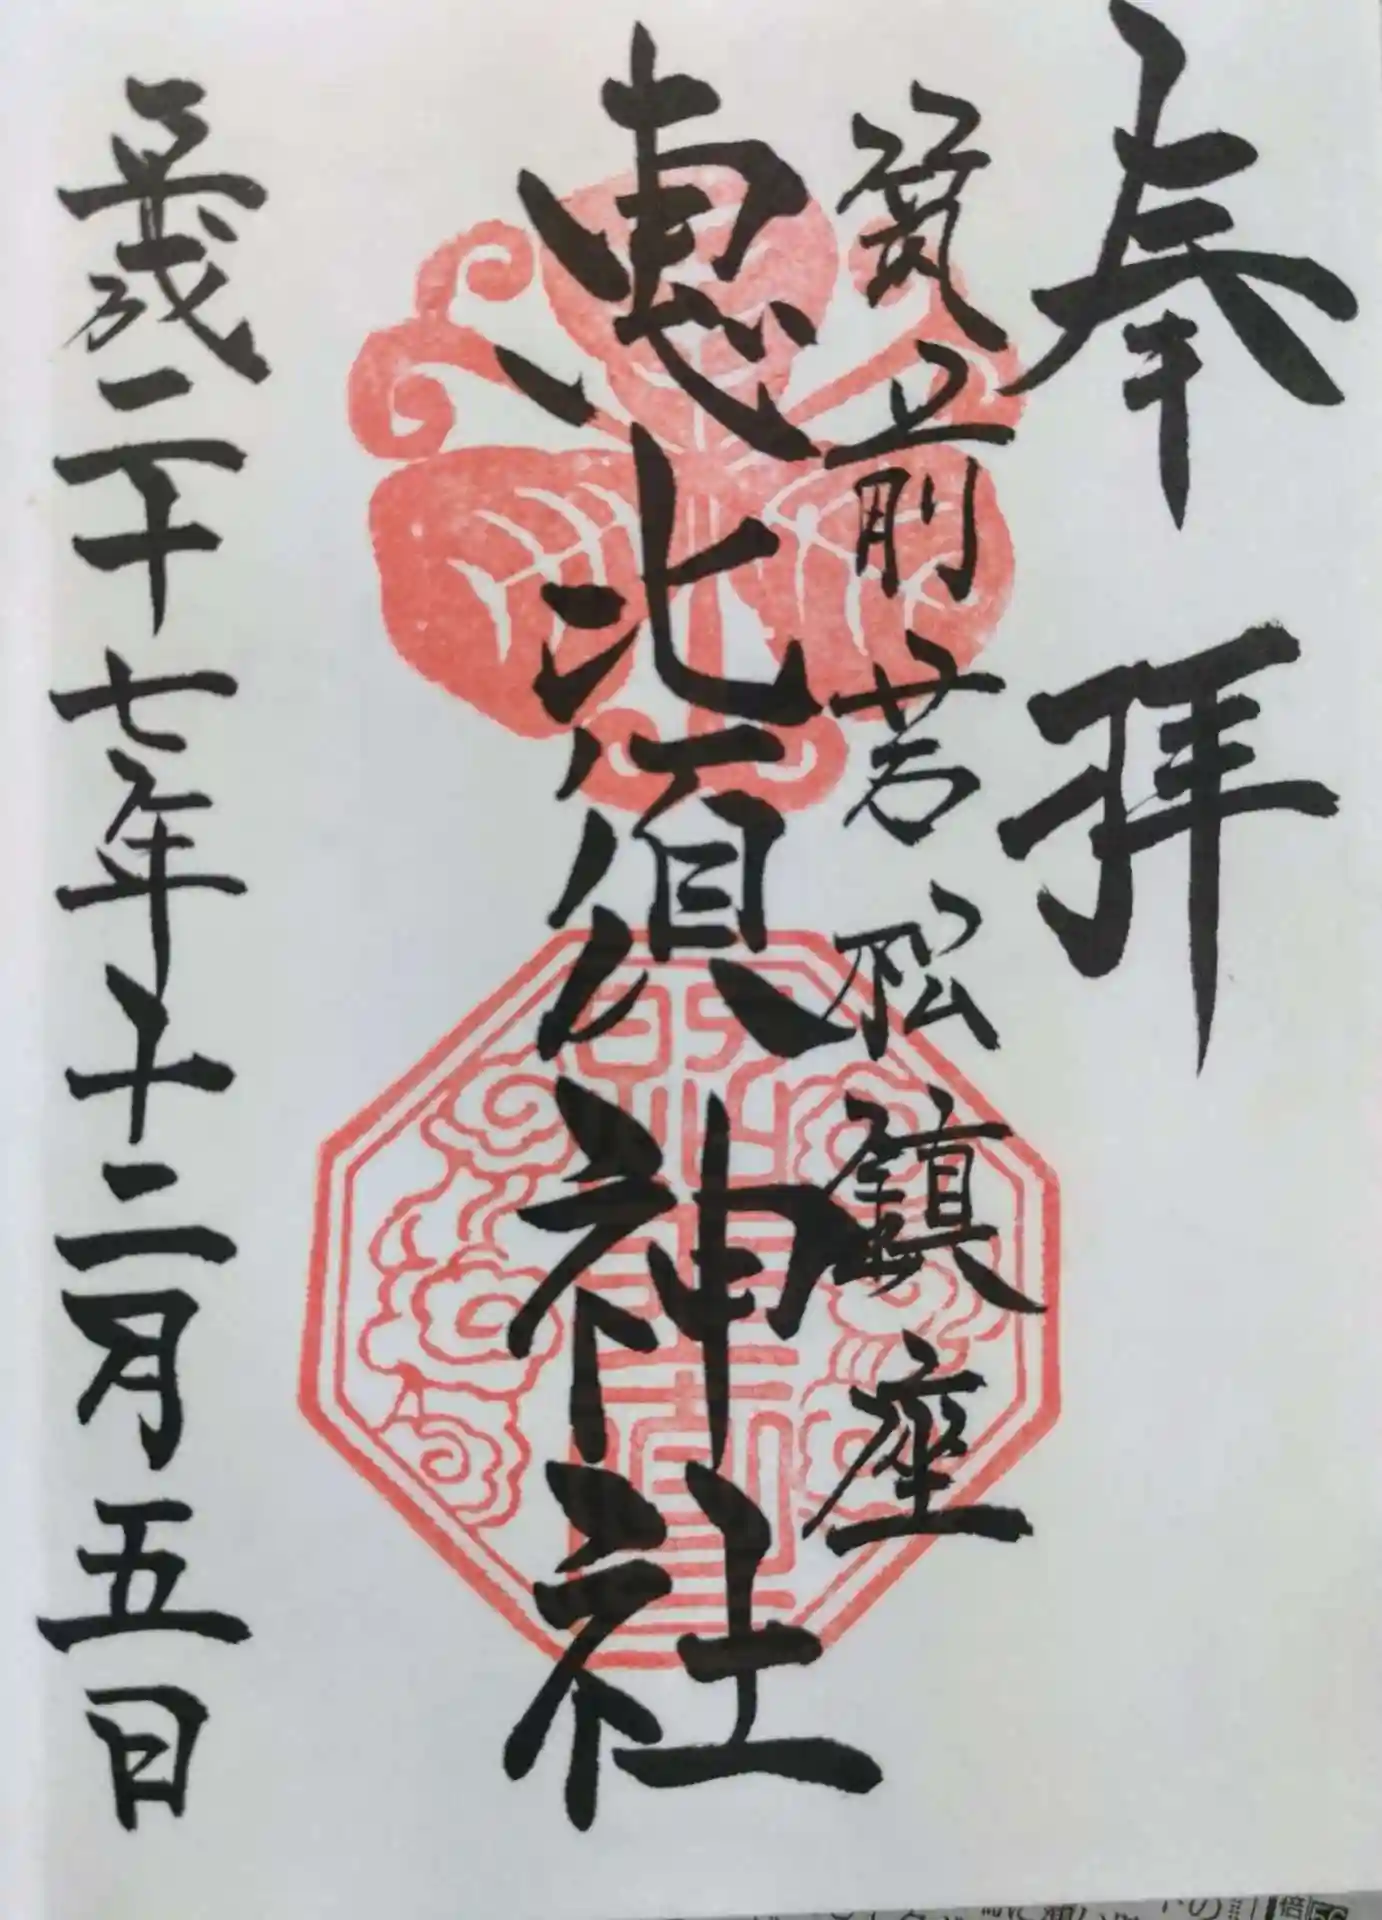 奉拝
筑前若松鎮座
恵比須神社
平成二十七年十二月五日